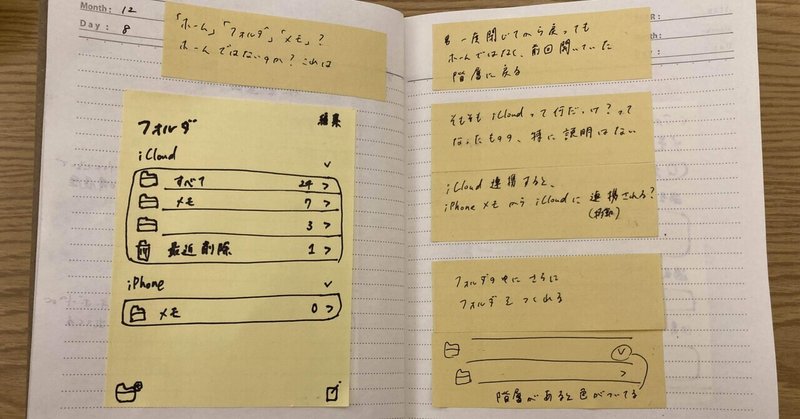 Month: 12
Day: 8
「ホーム」「フォルダ」「メモ」?
ホームではないのか?これは
フォルダ
編集
iCloud
すべて 24 >
メモ 7 >
3 >
最近削除 1 >
iPhone
メモ 0 >
一度閉じてから戻っても
ホームではなく、前回開いていた
階層に戻る
そもそも iCloudって何だっけ?って
なったものの、特に説明はない
iCloud 連携すると、
iPhoneメモから iCloudに連携される?
フォルダの中にさらに
フォルダをつくれる
階層があると色がついてる